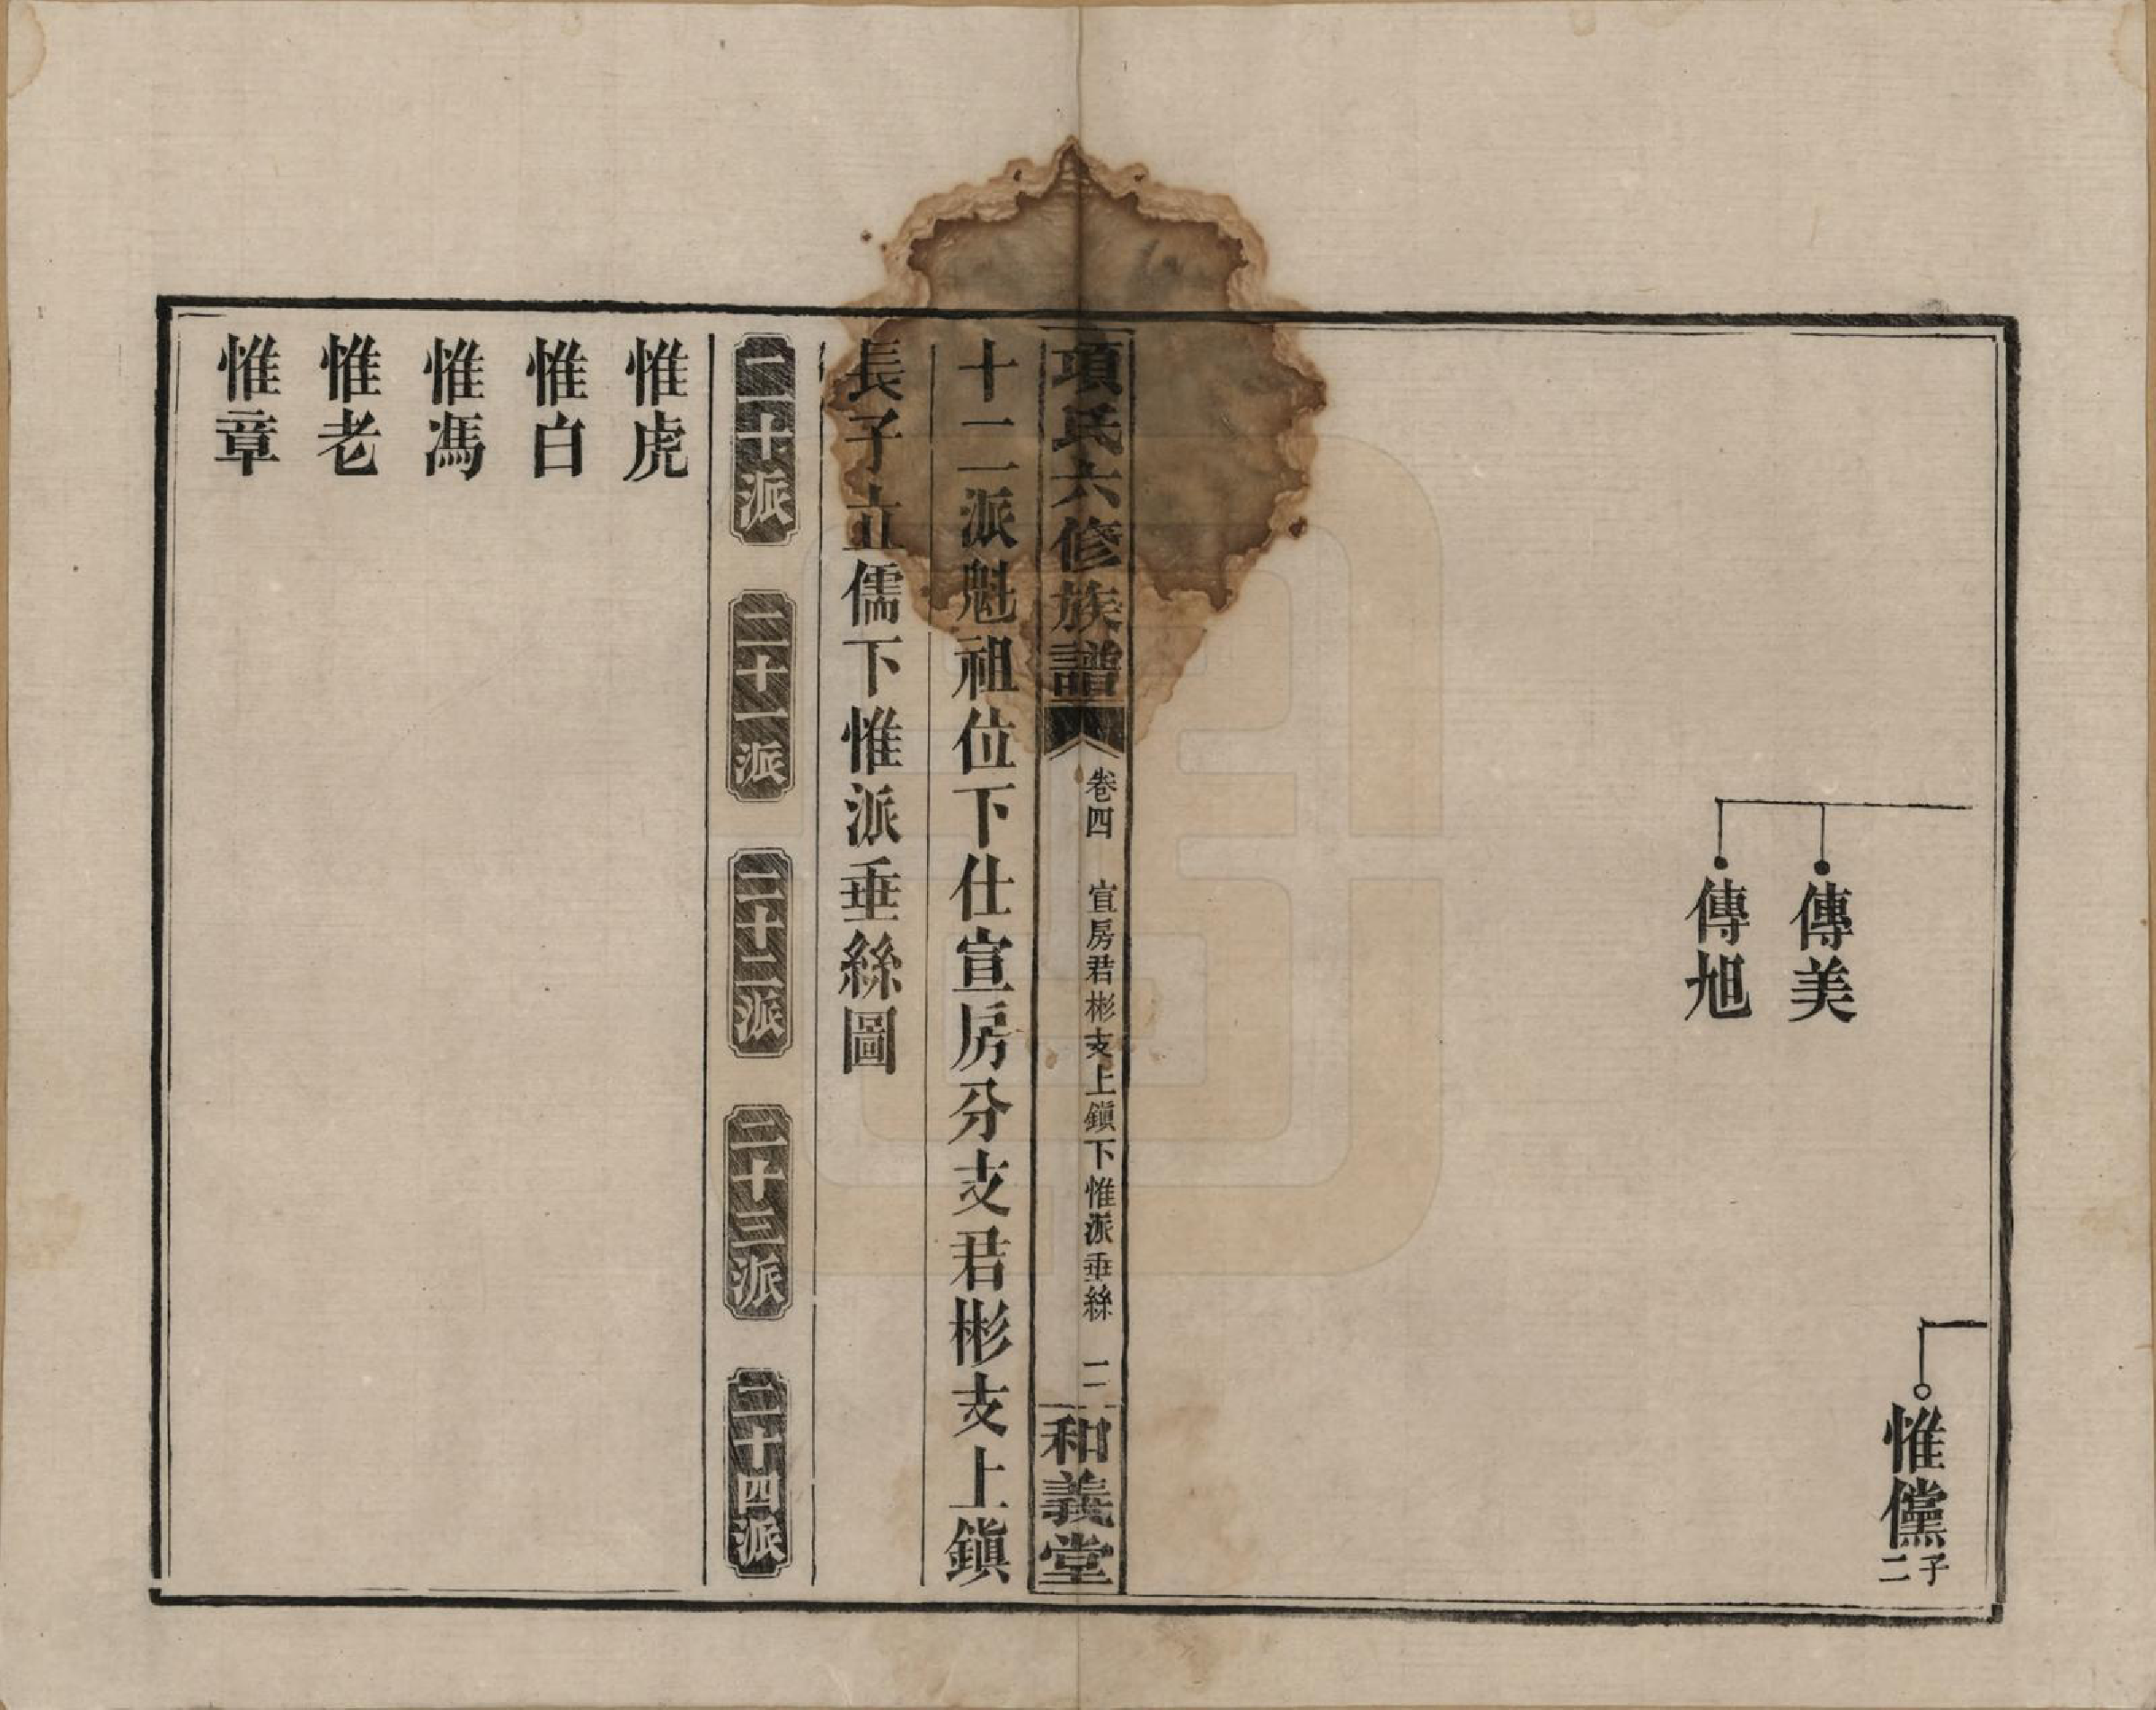 傳美
傳旭
惟儻
子二
項氏六修族譜
卷四
宣房君彬支上鎮下惟派垂絲
二
和義堂
十二派魁祖位下仕宣房分支君彬支上鎮
長子立儒下惟派垂絲圖
二十派
二十一派
二十二派
二十三派
二十四派
惟虎
惟白
惟馮
惟老
惟章